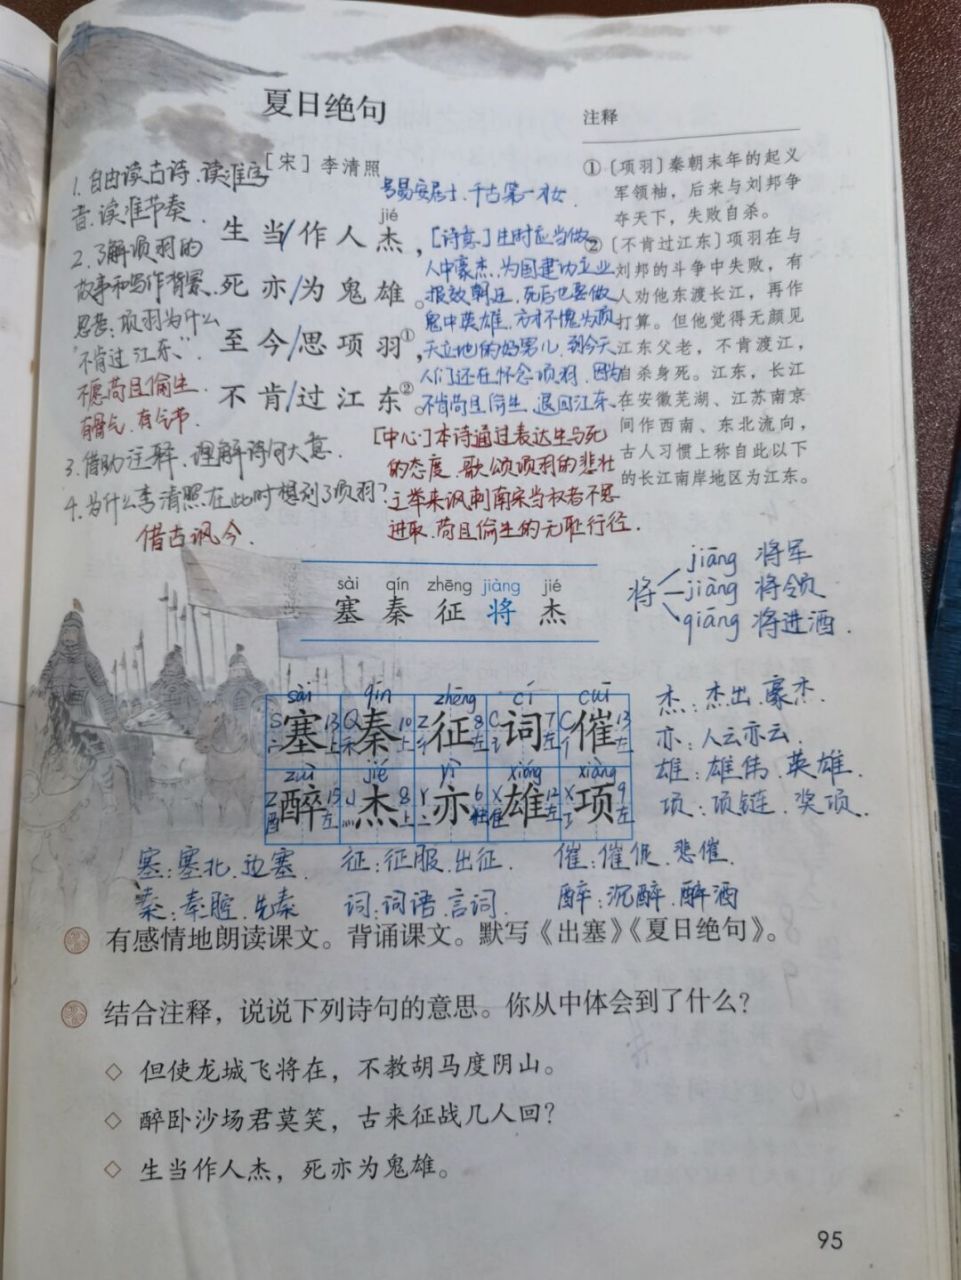 夏日绝句
[宋] 李清照
号易安居士、千古第一才女
1. 自由读古诗、读准字
音、读准节奏.
2. 了解项羽的
故事和写作背景.
思考:项羽为什么
“不肯过江东”.
不愿苟且偷生.
有骨气、有气节.
3. 借助注释、理解诗句大意.
4. 为什么李清照在此时想到了项羽?
借古讽今.
jié
生当/作人杰，
死亦/为鬼雄。
至今/思项羽①，
不肯/过江东②。
[诗意]生时应当做
人中豪杰、为国建功立业
报效朝廷、死后也要做
鬼中英雄、方才不愧为顶
天立地的好男儿、到今天
人们还在怀念项羽、因为
不肯苟且偷生、退回江东.
[中心]本诗通过表达生与死
的态度、歌颂项羽的悲壮
之举来讽刺南宋当权者不思
进取、苟且偷生的无耻行径.
注释
① [项羽]秦朝末年的起义
军领袖，后来与刘邦争
夺天下，失败自杀。
② [不肯过江东]项羽在与
刘邦的斗争中失败，有
人劝他东渡长江，再作
打算。但他觉得无颜见
江东父老，不肯渡江，
自杀身死。江东，长江
在安徽芜湖、江苏南京
间作西南、东北流向，
古人习惯上称自此以下
的长江南岸地区为江东。
sài qín zhēng jiàng jié
塞 秦 征 将 杰
将
jiāng 将军
jiàng 将领
qiāng 将进酒.
sài qín zhēng cí cuī
塞 秦 征 词 催
zuì jié yì xióng xiàng
醉 杰 亦 雄 项
杰:杰出、豪杰.
亦:人云亦云.
雄:雄伟、英雄.
项:项链、奖项.
塞:塞北、边塞 征:征服、出征. 催:催促、悲催.
秦:秦腔、先秦 词:词语、言词. 醉:沉醉、醉酒
有感情地朗读课文。背诵课文。默写《出塞》《夏日绝句》。
结合注释，说说下列诗句的意思。你从中体会到了什么？
◇ 但使龙城飞将在，不教胡马度阴山。
◇ 醉卧沙场君莫笑，古来征战几人回？
◇ 生当作人杰，死亦为鬼雄。
95